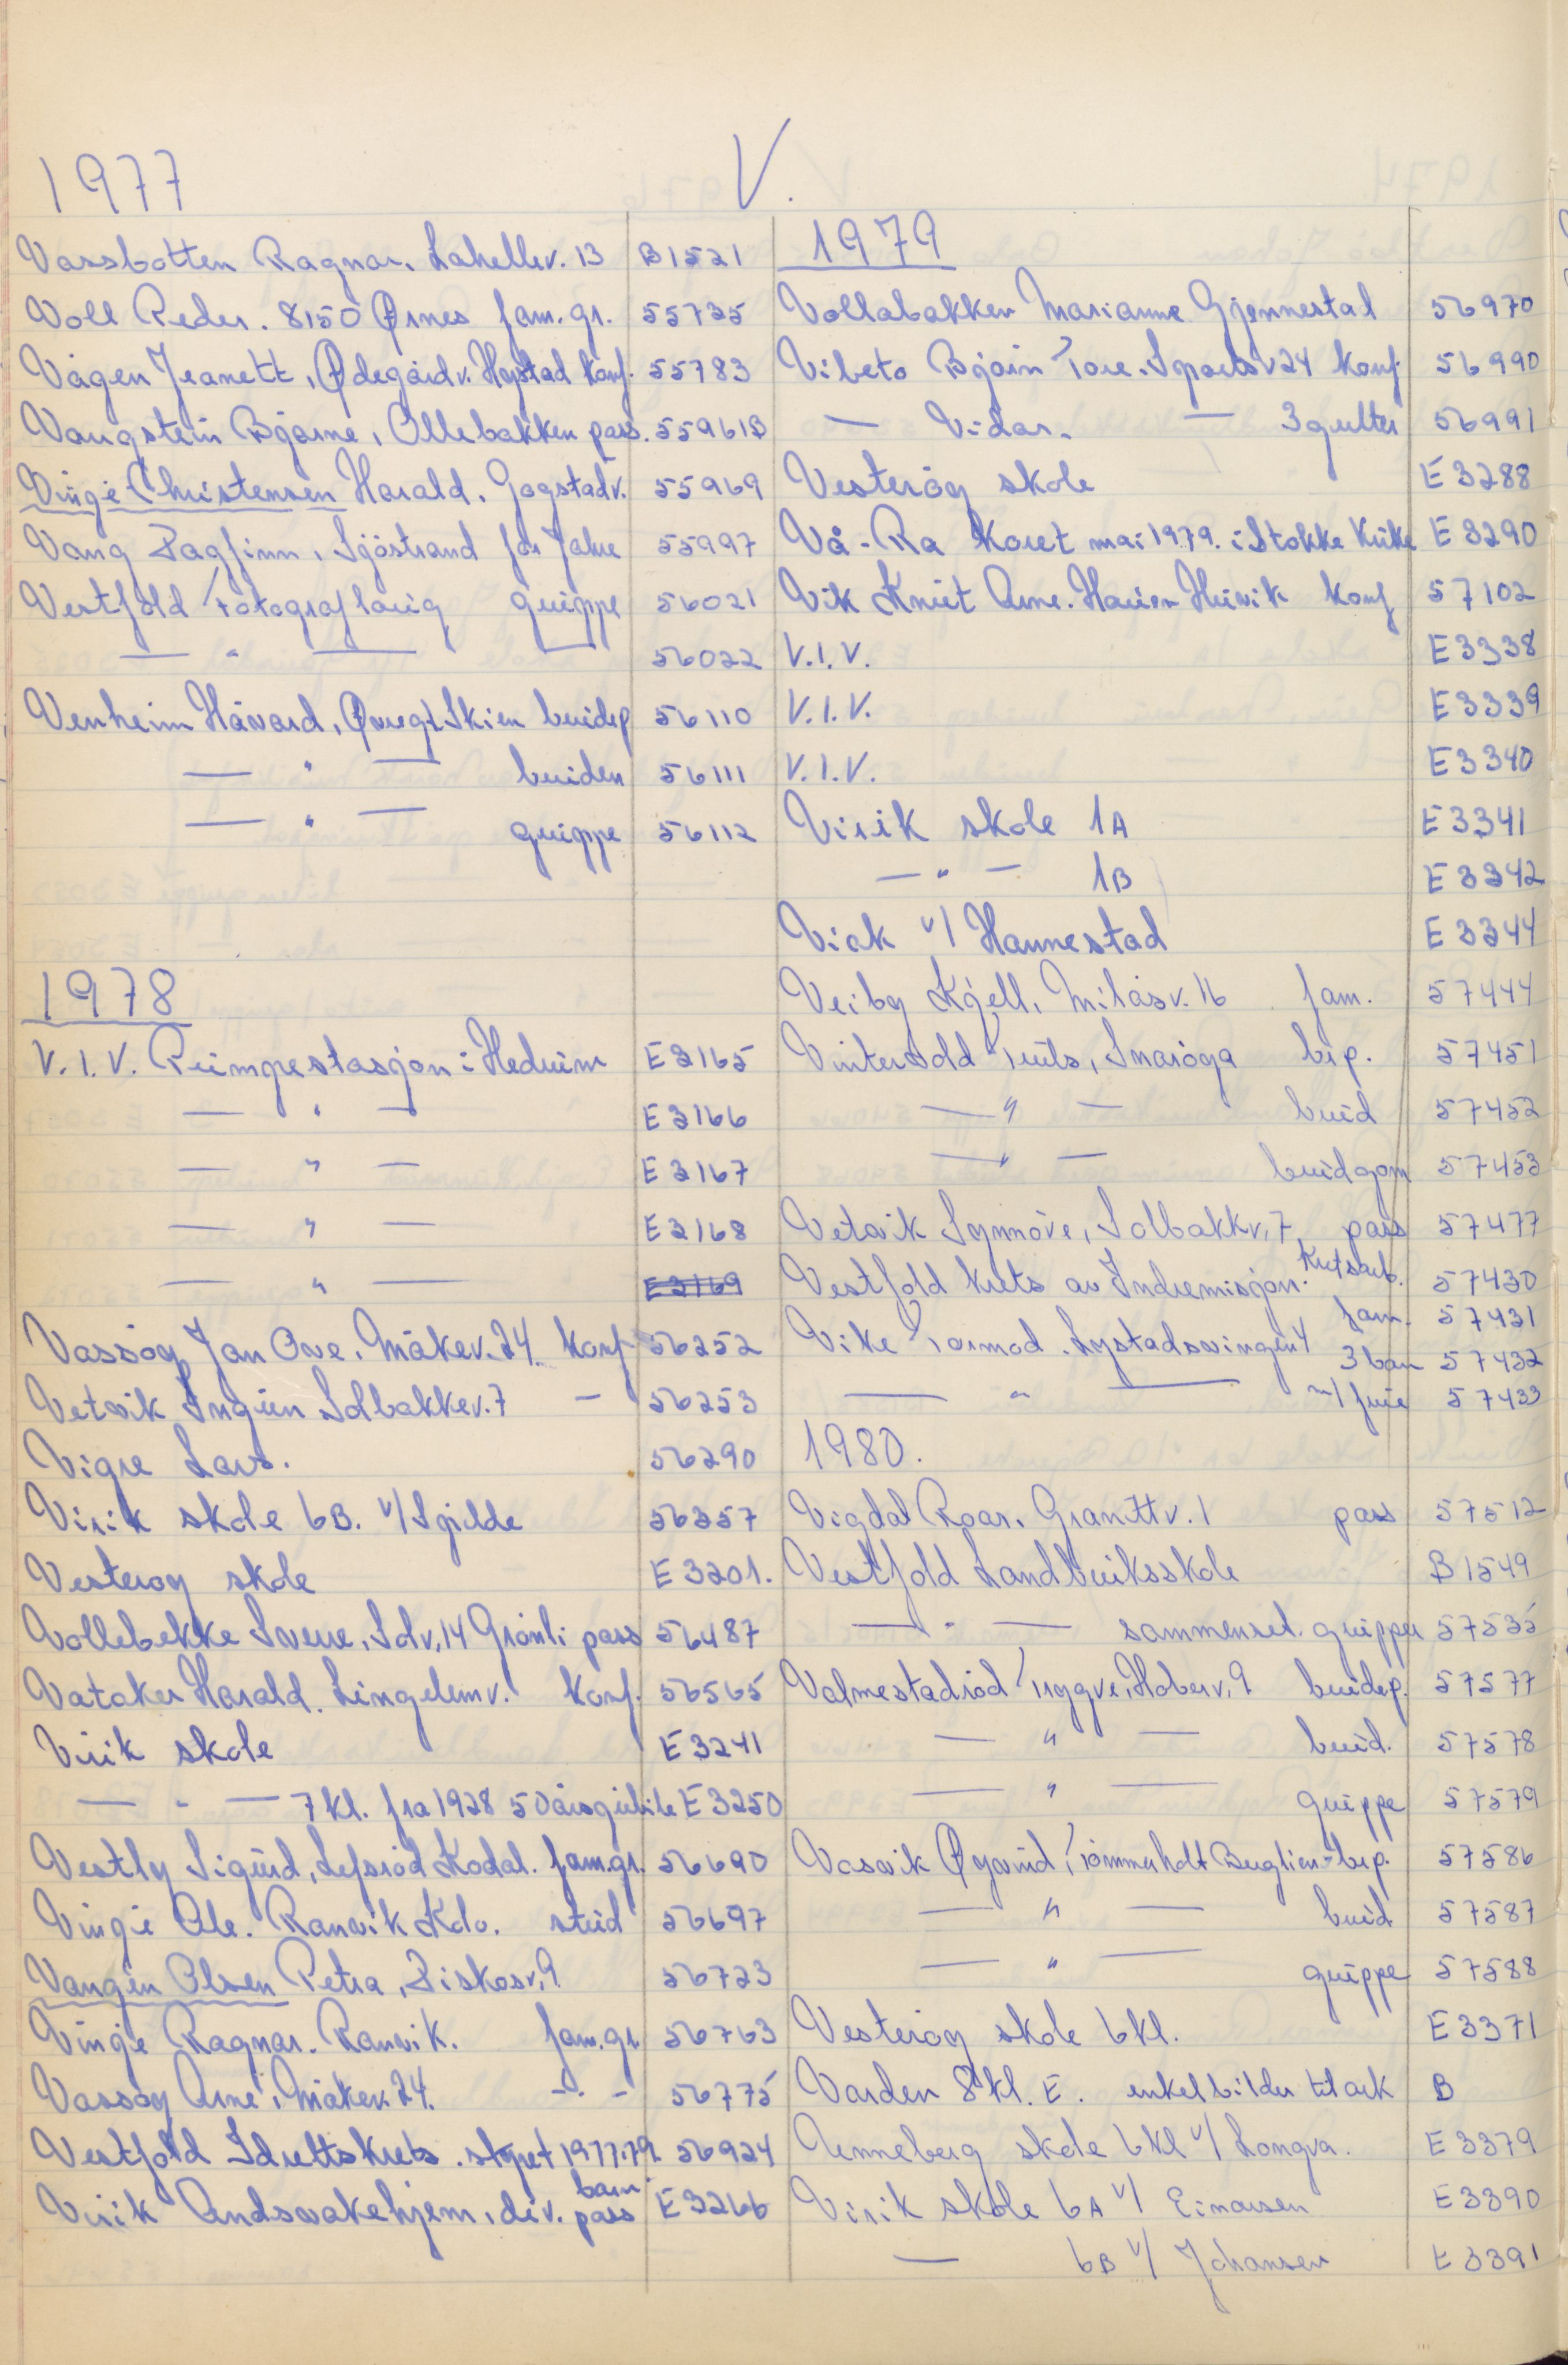 V.
1977
Vassbotten Ragnar. Lahellev. 13 B1521
Voll Peder. 8150 Ørnes fam. gr. 55735
Vågen Jeanett, Ødegårdv. Høystad konf. 55783
Vaugstein Bjarne, Ollebakken pass. 55961B
Vinge-Christensen Harald. Gogstadv. 55969
Vang Dagfinn, Sjöstrand för Jahre 55997
Vestfold Fotograflaug gruppe 56021
— " — 56022
Venheim Håvard, Øvregt Skien brudep 56110
— " — bruden 56111
— " — gruppe 56112
1978
V.I.V. Pumpestasjon i Hedrum E3165
— " — E3166
— " — E3167
— " — E3168
— " — E3169
Vassöy Jan Ove. Måkev. 24. konf 56252
Vetvik Ingunn Solbakkev. 7 — 56253
Vigre Lars. 56290
Virik skole 6B. v/Gjilde 56357
Vesteröy skole E3201.
Vollebekke Sverre, Solv. 14 Grönli pass 56487
Vataker Harald. Lingelemv. konf. 56565
Virik skole E3241
— " — 7 kl. fra 1928 50 årsjubile E3250
Vestly Sigurd, Lefsröd Kodal. fam.gr. 56690
Vinje Ole. Ranvik Kdo. stud 56697
Vangen Olsen Petra, Diskosv. 9 56723
Vinje Ragnar. Ranvik. fam.gr. 56763
Vassöy Arne, Måkev. 24. -"- 56775
Vestfold Idrettskrets. styret 1977-79 56924
Virik Åndssvakehjem, div. barn pass E3266
1979
Vollabakken Marianne Gjennestal 56970
Vibeto Bjørn Tore. Sportsv 24 konf. 56990
— Vidar. — 3 gutter 56991
Vesteröy skole E3288
Vå-Ra Koret mai 1979. i Stokke Kirke E3290
Vik Knut Arne. Hauan Husvik konf 57102
V.I.V. E3338
V.I.V. E3339
V.I.V. E3340
Virik skole 1A E3341
— " — 1B E3342
Vick v/ Hannestad E3344
Veiby Kjell, Milåsv. 16 fam. 57444
Vintervold Truls, Snaröya brp. 57451
— " — brud 57452
— " — brudgom 57453
Vetvik Synnöve, Solbakkv. 7, pass 57477
Vestfold krets av Indremisjon. Kretsarb. 57430
Vike Tormod. Lystadsvingen 4 fam. 57431
3 barn 57432
— " — m/ frue 57433
1980.
Vigdal Roar. Granittv. 1 pass 57512
Vestfold Landbruksskole B1549
— " — sammensat. grupper 57535
Valmestadröd Tryggve, Haberv. 9 brudep. 57577
— " — brud. 57578
— " — gruppe 57579
Vasvik Øyvind, Tömmerholt Berglien - brp. 57586
— " — brud 57587
— " — gruppe 57588
Vesteröy skole 6kl. E3371
Varden 8 kl. E. enkelbilder til ark B
Venneberg skole 6 kl v/ Longva. E3379
Virik skole 6A v/ Einarsen E3390
— 6B v/ Johansen E3391